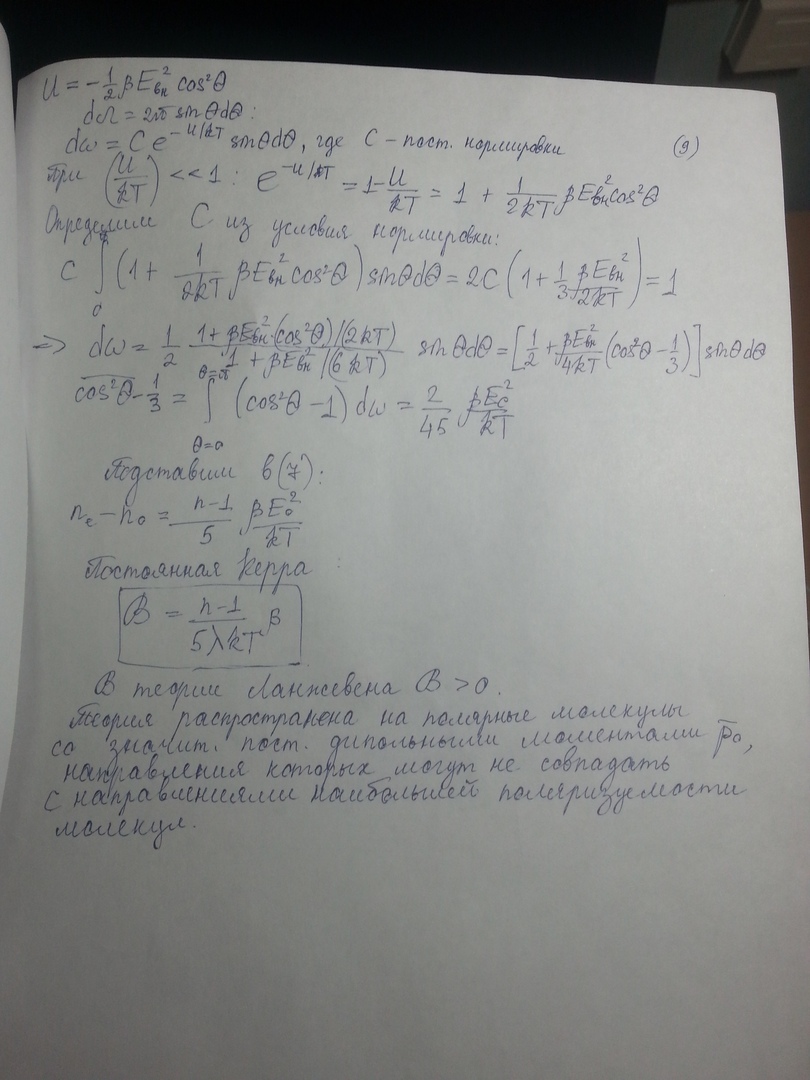 U = -1/2 βEвн² cos²θ
dΩ = 2π sinθdθ:
dω = C e^(-U/kT) sinθdθ, где C - пост. нормировки (9)
При (U/kT) << 1: e^(-U/kT) = 1 - U/kT = 1 + 1/2kT βEвн² cos²θ
Определим C из условия нормировки:
C ∫₀^π (1 + 1/2kT βEвн² cos²θ) sinθdθ = 2C (1 + 1/3 βEвн²/2kT) = 1
=> dω = 1/2 (1 + βEвн²·(cos²θ)/(2kT))/(1 + βEвн²/(6kT)) sinθdθ = [1/2 + βEвн²/4kT (cos²θ - 1/3)] sinθdθ
\overline{cos²θ} - 1/3 = ∫_{θ=0}^{θ=π} (cos²θ - 1) dω = 2/45 βEc²/kT
Подставим в (7):
nₑ - n₀ = n-1/5 βE₀²/kT
Постоянная Керра :
B = n-1/5λkT β
В теории Ланжевена B > 0.
Теория распространена на полярные молекулы
со значит. пост. дипольными моментами p̄₀,
направления которых могут не совпадать
с направлениями наибольшей поляризуемости
молекул.